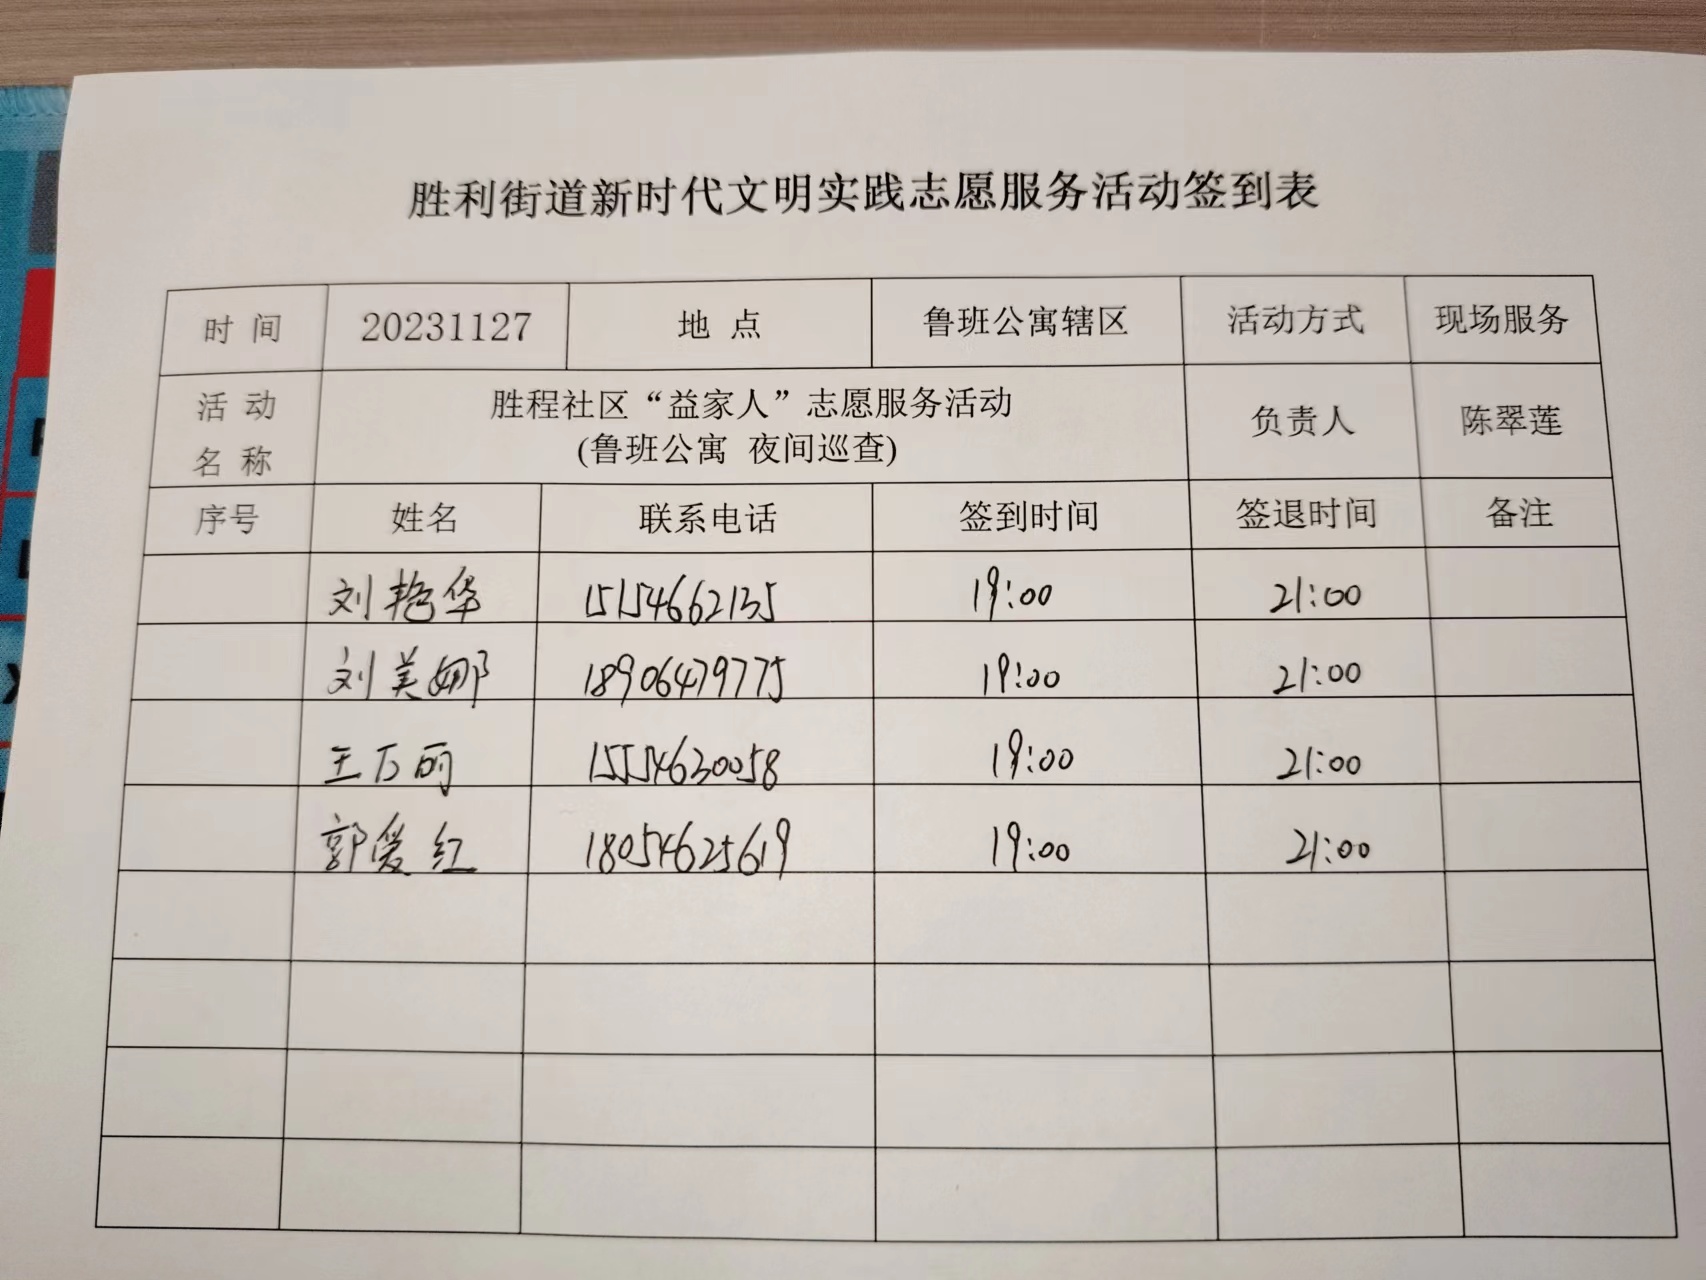 胜利街道新时代文明实践志愿服务活动签到表
时 间 20231127 地 点 鲁班公寓辖区 活动方式 现场服务
活 动 名 称 胜程社区“益家人”志愿服务活动 负责人 陈翠莲
(鲁班公寓 夜间巡查)
序号 姓名 联系电话 签到时间 签退时间 备注
刘艳华 15154662135 19:00 21:00
刘美娜 18906479775 19:00 21:00
王万丽 15554630058 19:00 21:00
郭爱红 18054625619 19:00 21:00